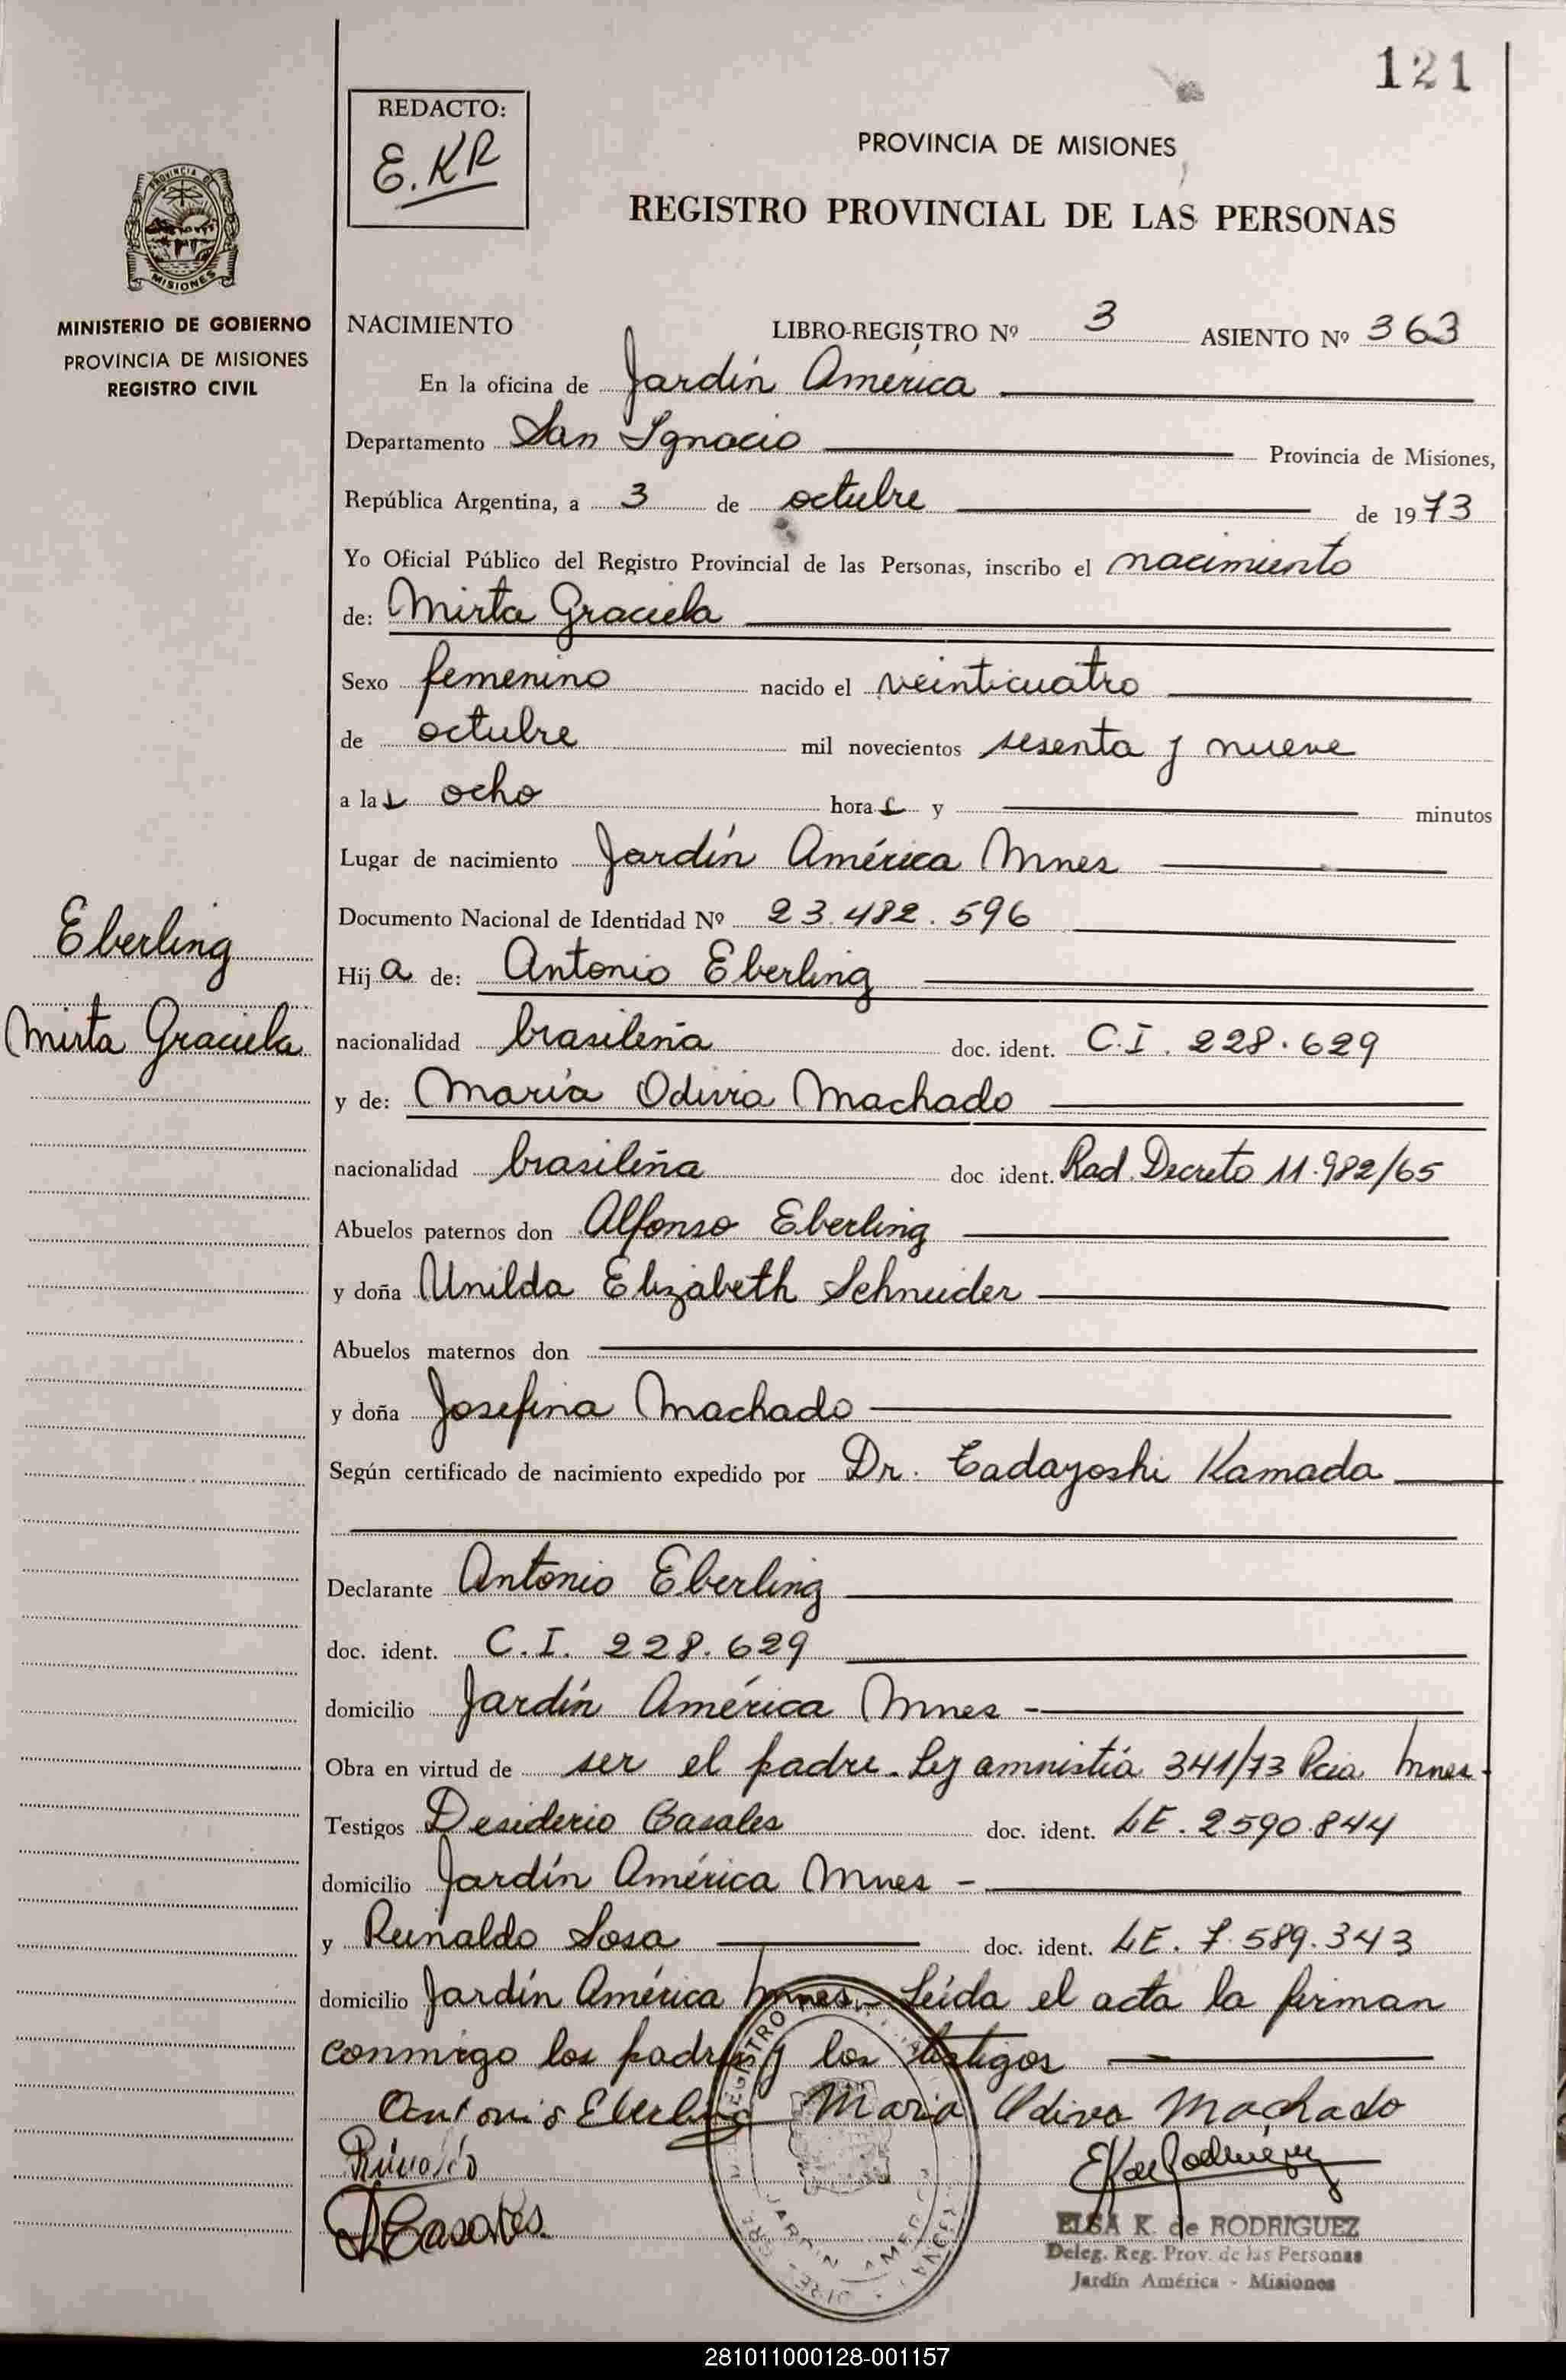 121
REDACTO:
E.KR
PROVINCIA DE MISIONES
REGISTRO PROVINCIAL DE LAS PERSONAS
PROVINCIA DE
MISIONES
MINISTERIO DE GOBIERNO
PROVINCIA DE MISIONES
REGISTRO CIVIL
NACIMIENTO LIBRO-REGISTRO Nº 3 ASIENTO Nº 363
En la oficina de Jardín América
Departamento San Ignacio Provincia de Misiones,
República Argentina, a 3 de octubre de 1973
Yo Oficial Público del Registro Provincial de las Personas, inscribo el nacimiento
de: Mirta Graciela
Sexo femenino nacido el veinticuatro
de octubre mil novecientos sesenta y nueve
a las ocho horas y minutos
Lugar de nacimiento Jardín América Mnes
Documento Nacional de Identidad Nº 23.482.596
Eberling
Mirta Graciela
Hija de: Antonio Eberling
nacionalidad brasileña doc. ident. C.I. 228.629
y de: María Odivia Machado
nacionalidad brasileña doc ident. Rad. Decreto 11.982/65
Abuelos paternos don Alfonso Eberling
y doña Unilda Elizabeth Schneider
Abuelos maternos don
y doña Josefina Machado
Según certificado de nacimiento expedido por Dr. Tadayoshi Kamada
Declarante Antonio Eberling
doc. ident. C.I. 228.629
domicilio Jardín América Mnes -
Obra en virtud de ser el padre. Ley amnistía 341/73 Pcia Mnes-
Testigos Desiderio Casales doc. ident. LE. 2590.844
domicilio Jardín América Mnes -
y Reinaldo Sosa doc. ident. LE. 7.589.343
domicilio Jardín América Mnes.- Leída el acta la firman
conmigo los padres y los testigos
Antonio Eberling Maria Odiva Machado
ELSA K. de RODRIGUEZ
Deleg. Reg. Prov. de las Personas
Jardín América - Misiones
281011000128-001157